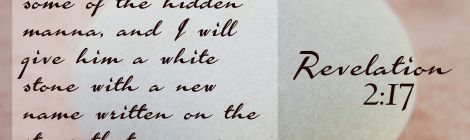 some of the hidden
manna, and I will
give him a white
stone with a new
name written on the
Revelation
2:17